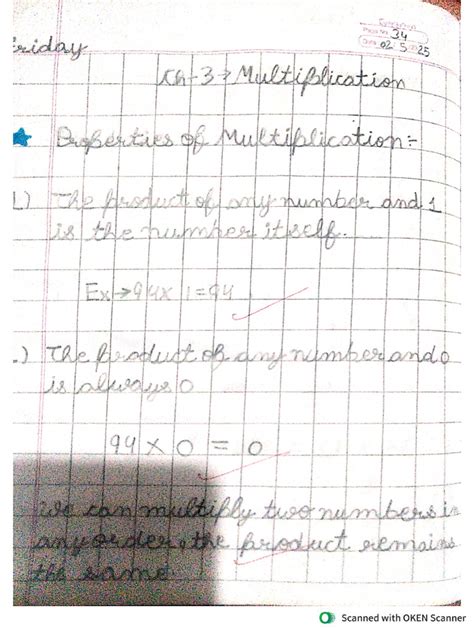 Page No. 34
Date 02 5 25
Friday
Ch-3 → Multiplication
Properties of Multiplication:-
1.) The product of any number and 1
is the number itself.
Ex → 94 x 1 = 94
.) The product of any number and 0
is always 0
94 x 0 = 0
we can multiply two numbers in
any order, the product remains
the same
Scanned with OKEN Scanner